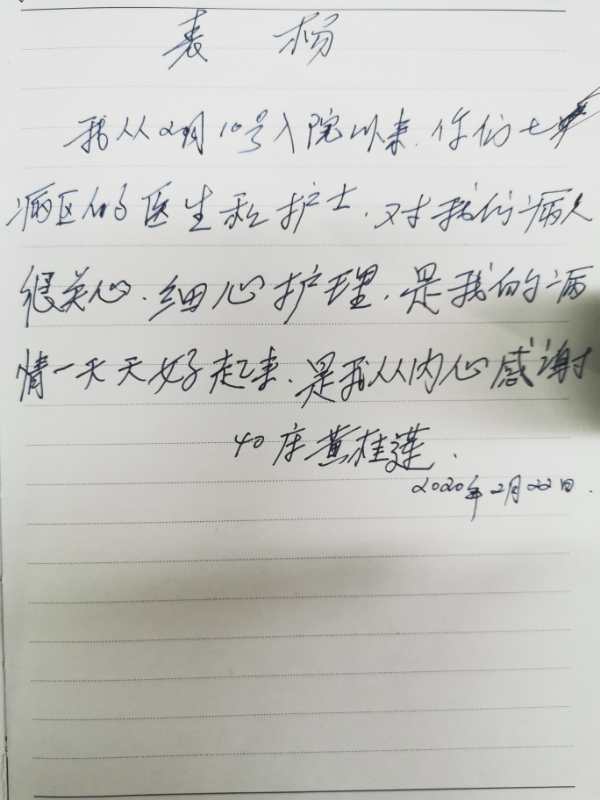 表 杨
我从2月10号入院以来.你们七
病区的医生和护士.对我们病人
很关心.细心护理.是我的病
情一天天好起来.是我从内心感谢
40床黄桂莲.
2020年2月22日.